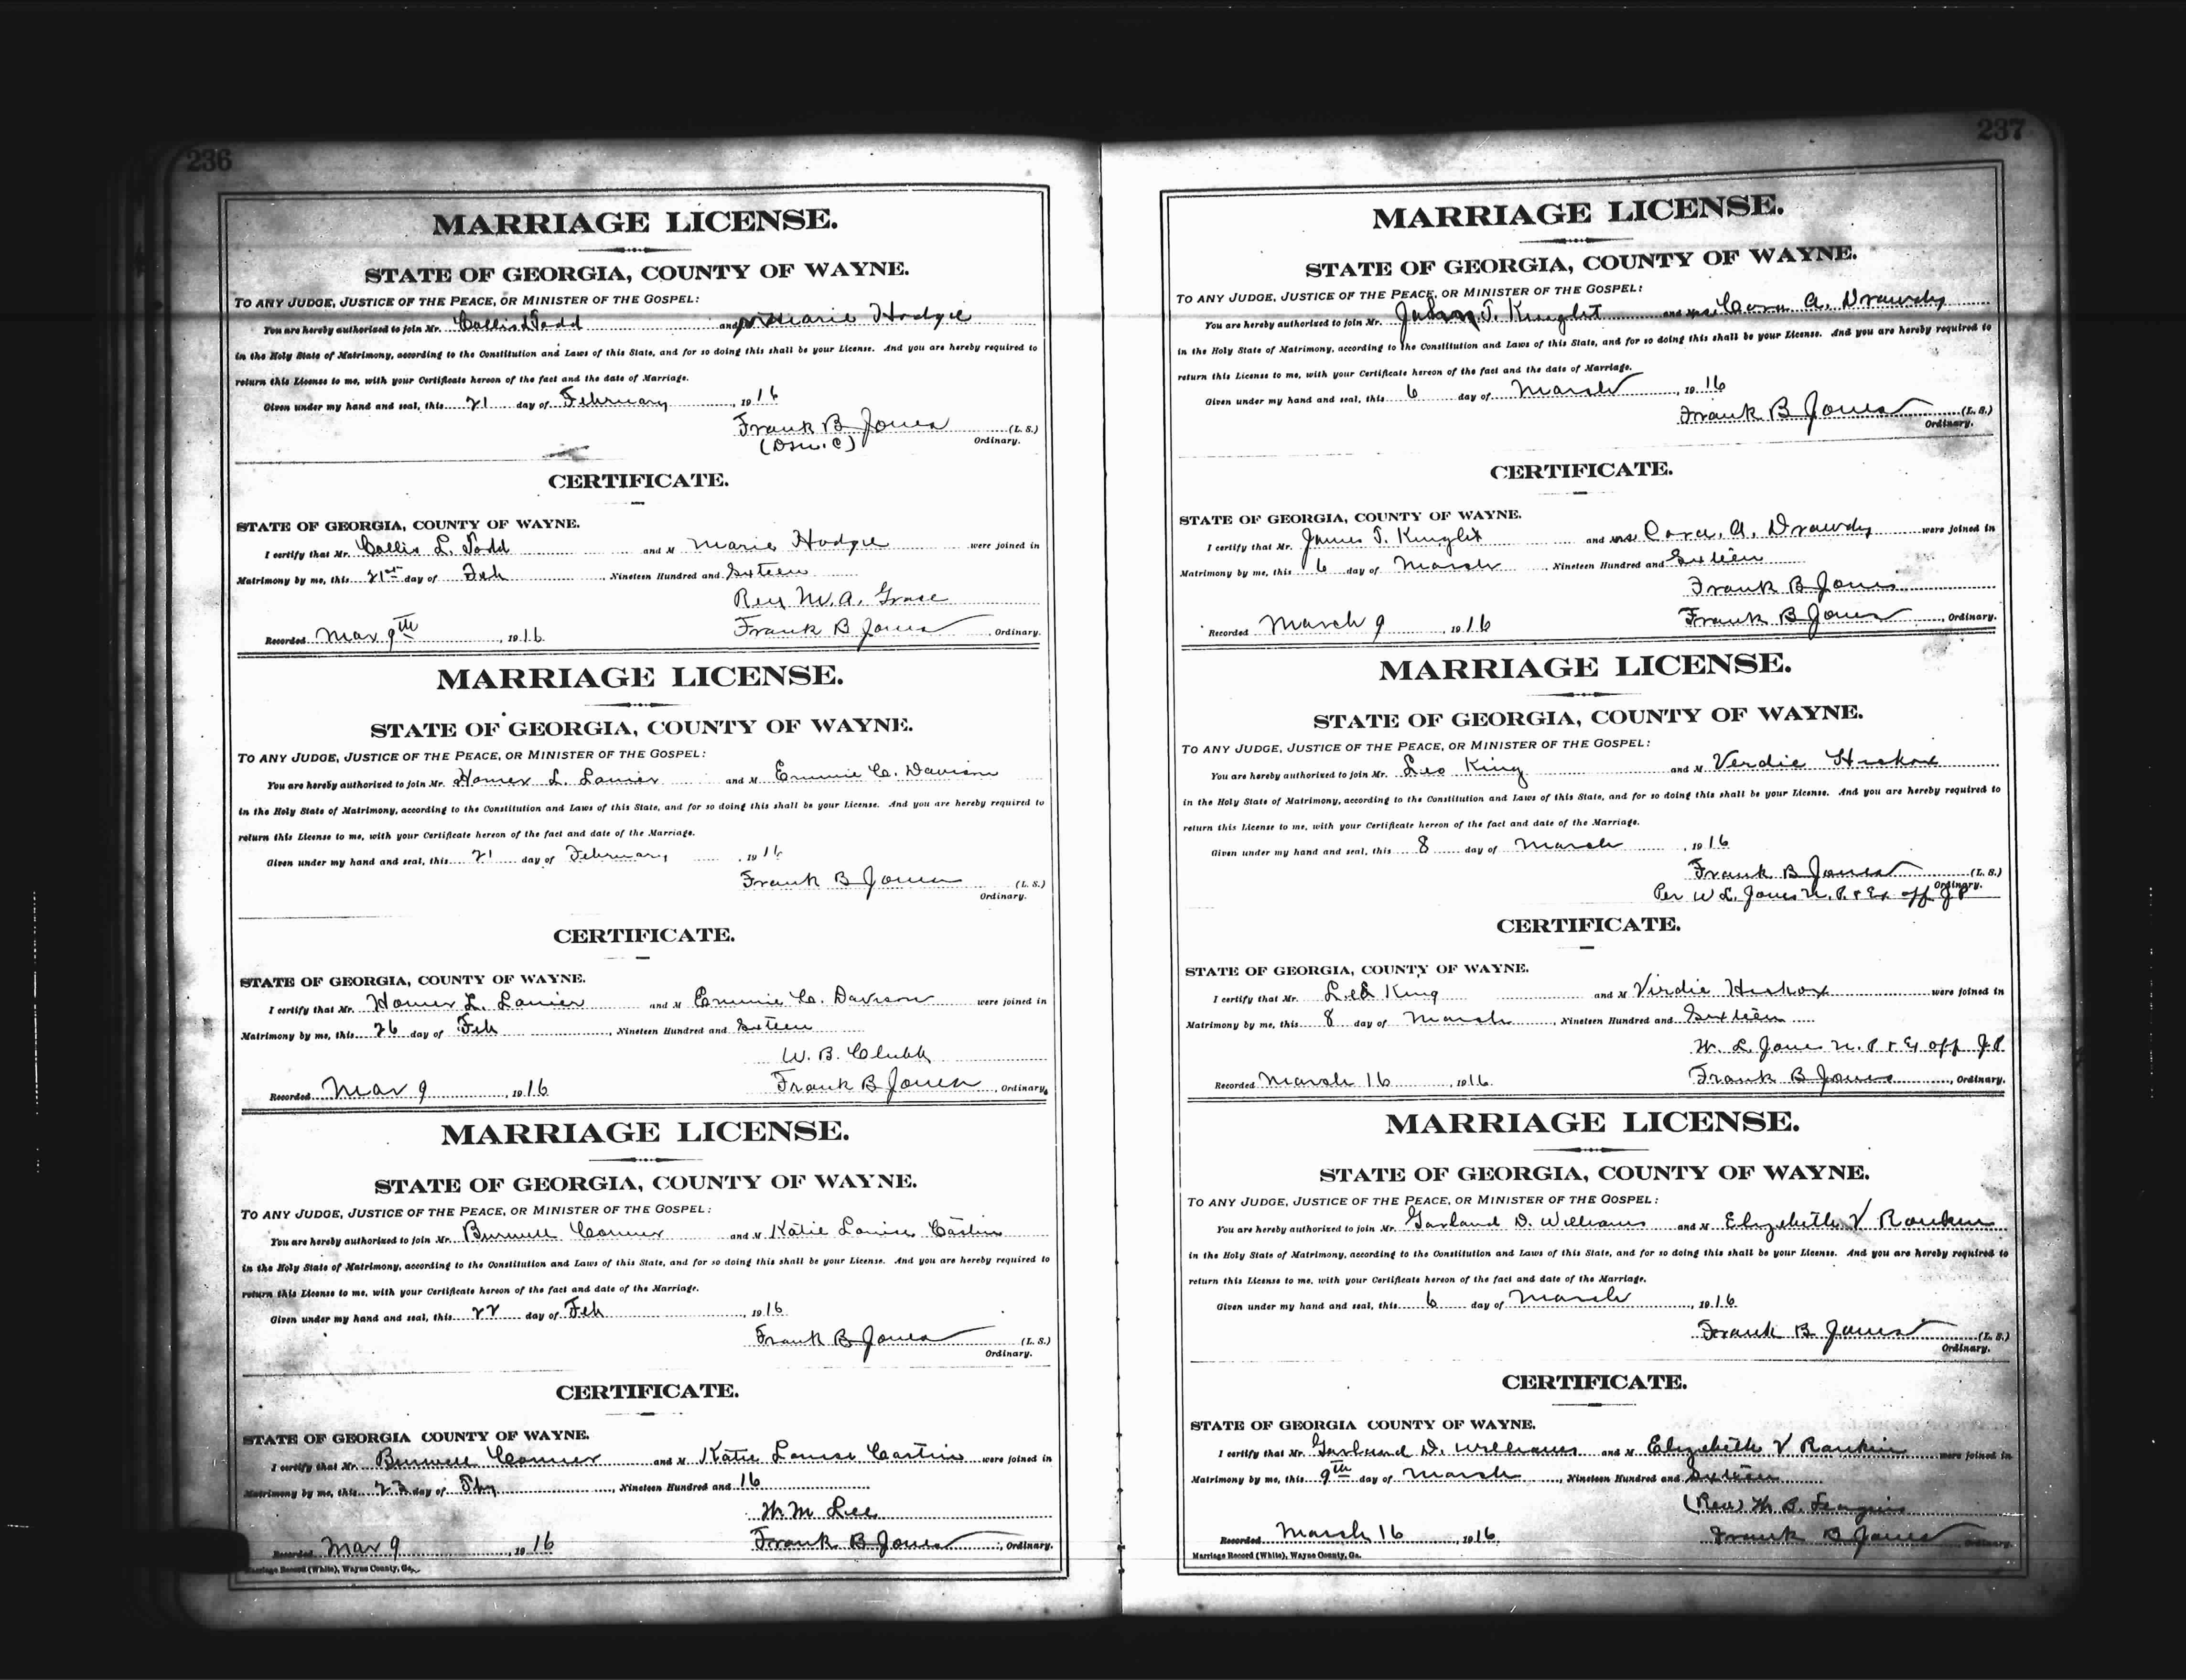 236
MARRIAGE LICENSE.
STATE OF GEORGIA, COUNTY OF WAYNE.
TO ANY JUDGE, JUSTICE OF THE PEACE, OR MINISTER OF THE GOSPEL:
You are hereby authorized to join Mr. Collis L Todd and Marie Hodge
in the Holy State of Matrimony, according to the Constitution and Laws of this State, and for so doing this shall be your License. And you are hereby required to
return this License to me, with your Certificate hereon of the fact and the date of Marriage.
Given under my hand and seal, this 21 day of February, 1916
Frank B Jones (L. S.)
Ordinary.
CERTIFICATE.
STATE OF GEORGIA, COUNTY OF WAYNE.
I certify that Mr. Collis L. Todd and M Marie Hodge were joined in
Matrimony by me, this 21st day of Feb, Nineteen Hundred and Sixteen
Rev M. A. Grace
Recorded Mar 9th, 1916 Frank B Jones, Ordinary.
MARRIAGE LICENSE.
STATE OF GEORGIA, COUNTY OF WAYNE.
TO ANY JUDGE, JUSTICE OF THE PEACE, OR MINISTER OF THE GOSPEL:
You are hereby authorized to join Mr. Homer L. Lanier and M Emmie C. Davison
in the Holy State of Matrimony, according to the Constitution and Laws of this State, and for so doing this shall be your License. And you are hereby required to
return this License to me, with your Certificate hereon of the fact and date of the Marriage.
Given under my hand and seal, this 21 day of February, 1916
Frank B Jones (L. S.)
Ordinary.
CERTIFICATE.
STATE OF GEORGIA, COUNTY OF WAYNE.
I certify that Mr. Homer L. Lanier and M Emmie C. Davison were joined in
Matrimony by me, this 26 day of Feb, Nineteen Hundred and Sixteen
W. B. Clubb
Recorded Mar 9, 1916 Frank B Jones, Ordinary.
MARRIAGE LICENSE.
STATE OF GEORGIA, COUNTY OF WAYNE.
TO ANY JUDGE, JUSTICE OF THE PEACE, OR MINISTER OF THE GOSPEL:
You are hereby authorized to join Mr. Burwell Conner and M Katie Louise
in the Holy State of Matrimony, according to the Constitution and Laws of this State, and for so doing this shall be your License. And you are hereby required to
return this License to me, with your Certificate hereon of the fact and date of the Marriage.
Given under my hand and seal, this 22 day of Feb, 1916
Frank B Jones (L. S.)
Ordinary.
CERTIFICATE.
STATE OF GEORGIA COUNTY OF WAYNE.
I certify that Mr. Burwell Conner and M Katie Louise were joined in
Matrimony by me, this day of, Nineteen Hundred and 16
W. M Lee
Recorded Mar 9 1916 Frank B Jones, Ordinary.
Marriage Record (White), Wayne County, Ga.
237
MARRIAGE LICENSE.
STATE OF GEORGIA, COUNTY OF WAYNE.
TO ANY JUDGE, JUSTICE OF THE PEACE, OR MINISTER OF THE GOSPEL:
You are hereby authorized to join Mr. T. Knight and Mrs Cora A. Drawdy
in the Holy State of Matrimony, according to the Constitution and Laws of this State, and for so doing this shall be your License. And you are hereby required to
return this License to me, with your Certificate hereon of the fact and the date of Marriage.
Given under my hand and seal, this 6 day of March, 1916
Frank B Jones (L. S.)
Ordinary.
CERTIFICATE.
STATE OF GEORGIA, COUNTY OF WAYNE.
I certify that Mr. James T. Knight and Mrs Cora. A. Drawdy were joined in
Matrimony by me, this 6 day of March, Nineteen Hundred and Sixteen
Frank B Jones
Recorded March 9, 1916 Frank B Jones, Ordinary.
MARRIAGE LICENSE.
STATE OF GEORGIA, COUNTY OF WAYNE.
TO ANY JUDGE, JUSTICE OF THE PEACE, OR MINISTER OF THE GOSPEL:
You are hereby authorized to join Mr. Leo King and M Verdie Hickox
in the Holy State of Matrimony, according to the Constitution and Laws of this State, and for so doing this shall be your License. And you are hereby required to
return this License to me, with your Certificate hereon of the fact and date of the Marriage.
Given under my hand and seal, this 8 day of March, 1916
Frank B Jones (L. S.)
Ordinary.
Per W L. Jones N. P. & Ex off J P
CERTIFICATE.
STATE OF GEORGIA, COUNTY OF WAYNE.
I certify that Mr. Leo King and M Virdie Hickox were joined in
Matrimony by me, this 8 day of March, Nineteen Hundred and Sixteen
W. L Jones N. P & Ex off J. P.
Recorded March 16, 1916. Frank B Jones, Ordinary.
MARRIAGE LICENSE.
STATE OF GEORGIA, COUNTY OF WAYNE.
TO ANY JUDGE, JUSTICE OF THE PEACE, OR MINISTER OF THE GOSPEL:
You are hereby authorized to join Mr. Garland D. Williams and M Elizabeth V Rankin
in the Holy State of Matrimony, according to the Constitution and Laws of this State, and for so doing this shall be your License. And you are hereby required to
return this License to me, with your Certificate hereon of the fact and date of the Marriage.
Given under my hand and seal, this 6 day of March, 1916
Frank B Jones (L. S.)
Ordinary.
CERTIFICATE.
STATE OF GEORGIA COUNTY OF WAYNE.
I certify that Mr. Garland D. Williams and M Elizabeth V Rankin were joined in
Matrimony by me, this 9th day of March, Nineteen Hundred and Sixteen
(Rev) W. B.
Recorded March 16, 1916. Frank B Jones Ordinary.
Marriage Record (White), Wayne County, Ga.